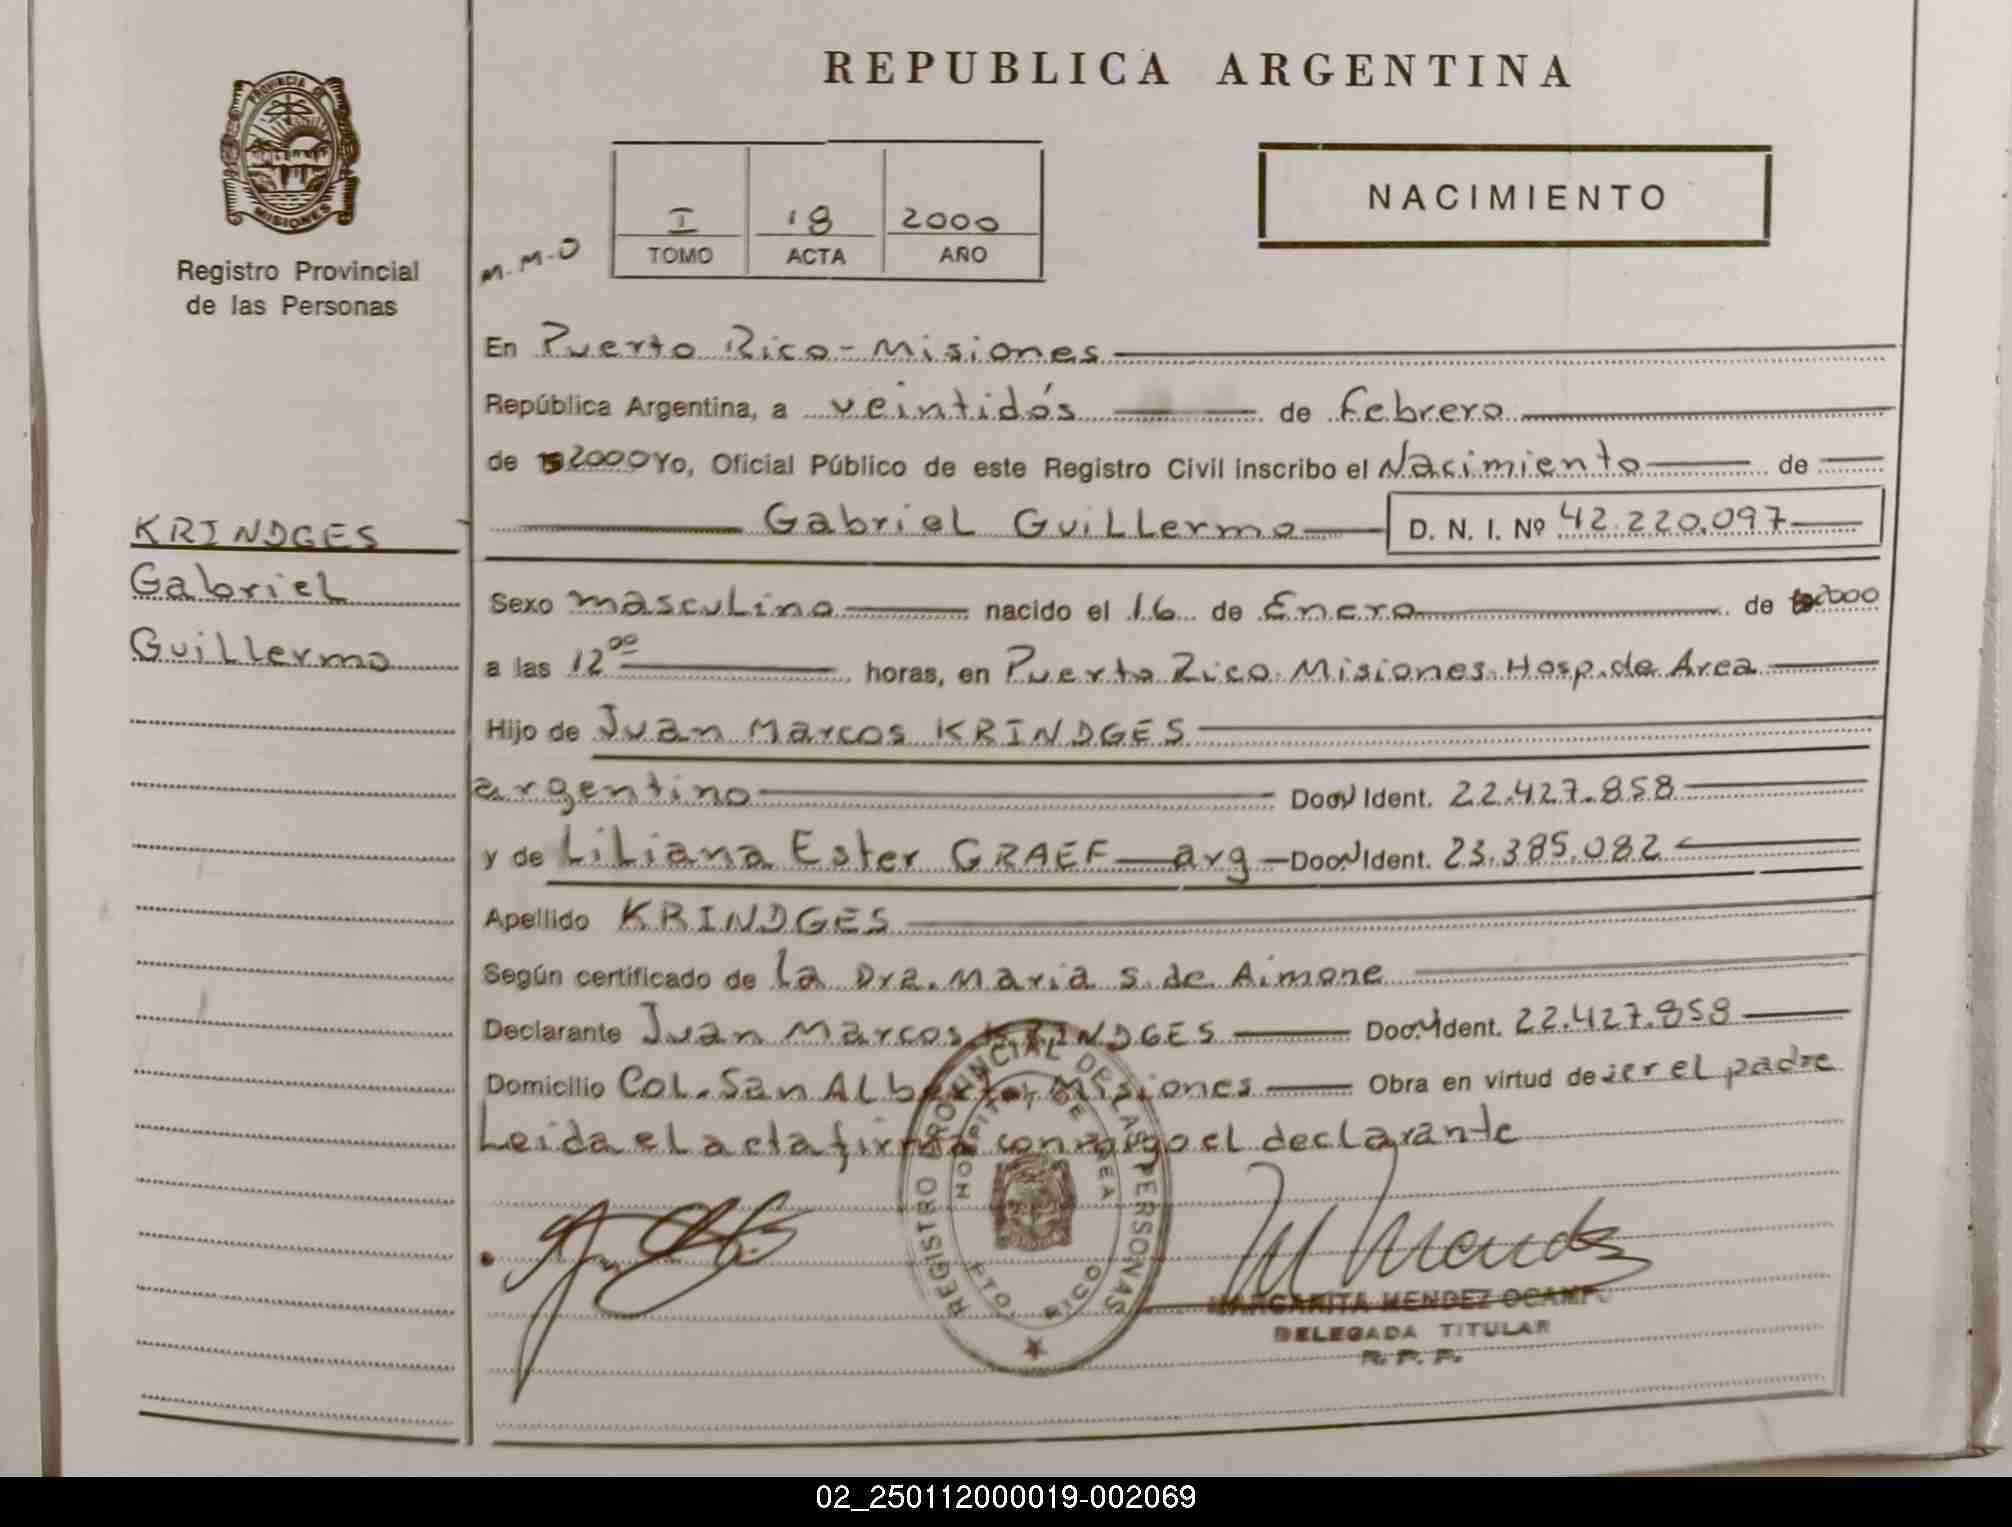 REPUBLICA ARGENTINA
PROVINCIA DE
MISIONES
Registro Provincial
de las Personas
NACIMIENTO
I 18 2000
TOMO ACTA AÑO
M.M.O
En Puerto Rico - Misiones
República Argentina, a veintidós de Febrero
de 2000 Yo, Oficial Público de este Registro Civil inscribo el Nacimiento de
Gabriel Guillermo D. N. I. Nº 42.220.097
KRINDGES
Gabriel
Guillermo
Sexo masculino nacido el 16 de Enero de 2000
a las 12 00 horas, en Puerto Rico. Misiones. Hosp. de Area
Hijo de Juan Marcos KRINDGES
argentino Doc. N Ident. 22.427.858
y de Liliana Ester GRAEF arg Doc. N Ident. 23.385.082
Apellido KRINDGES
Según certificado de la Dra. Maria S. de Aimone
Declarante Juan Marcos KRINDGES Doc. N Ident. 22.427.858
Domicilio Col. San Alberto Misiones Obra en virtud de ser el padre
Leida el acta firma conmigo el declarante
REGISTRO PROVINCIAL DE LAS PERSONAS
HOSPITAL DE AREA
PTO. RICO
MARGARITA MENDEZ OCAMPO
DELEGADA TITULAR
R. P. P.
02_250112000019-002069